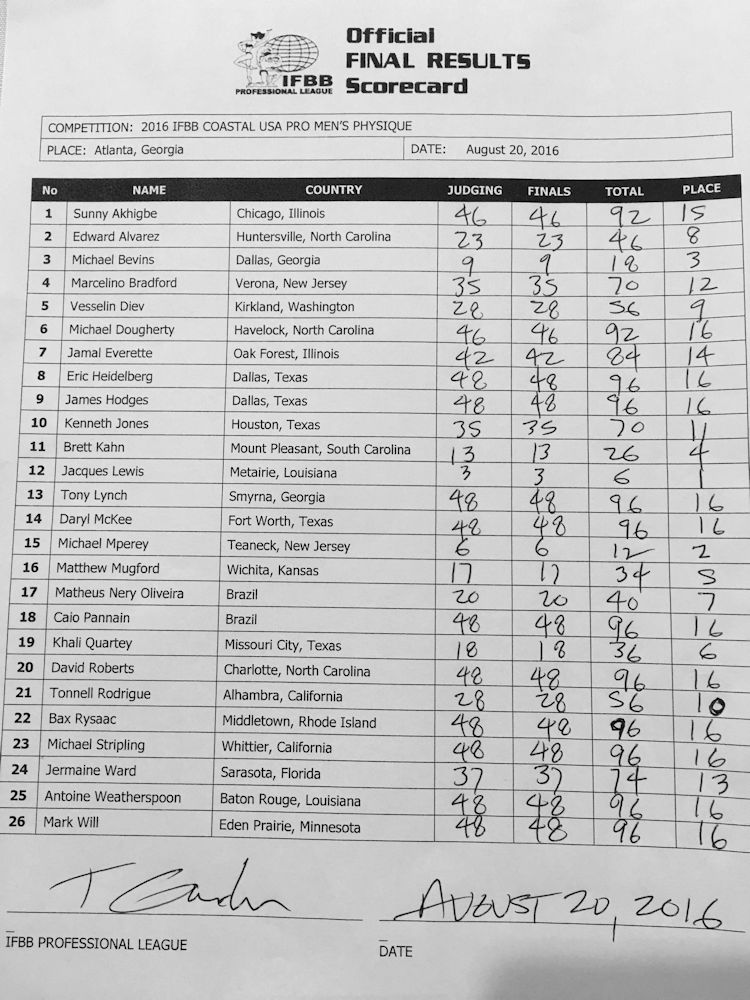 Official
FINAL RESULTS
Scorecard
IFBB
PROFESSIONAL LEAGUE
COMPETITION: 2016 IFBB COASTAL USA PRO MEN'S PHYSIQUE
PLACE: Atlanta, Georgia DATE: August 20, 2016
No NAME COUNTRY JUDGING FINALS TOTAL PLACE
1 Sunny Akhigbe Chicago, Illinois 46 46 92 15
2 Edward Alvarez Huntersville, North Carolina 23 23 46 8
3 Michael Bevins Dallas, Georgia 9 9 18 3
4 Marcelino Bradford Verona, New Jersey 35 35 70 12
5 Vesselin Diev Kirkland, Washington 28 28 56 9
6 Michael Dougherty Havelock, North Carolina 46 46 92 16
7 Jamal Everette Oak Forest, Illinois 42 42 84 14
8 Eric Heidelberg Dallas, Texas 48 48 96 16
9 James Hodges Dallas, Texas 48 48 96 16
10 Kenneth Jones Houston, Texas 35 35 70 11
11 Brett Kahn Mount Pleasant, South Carolina 13 13 26 4
12 Jacques Lewis Metairie, Louisiana 3 3 6 1
13 Tony Lynch Smyrna, Georgia 48 48 96 16
14 Daryl McKee Fort Worth, Texas 48 48 96 16
15 Michael Mperey Teaneck, New Jersey 6 6 12 2
16 Matthew Mugford Wichita, Kansas 17 17 34 5
17 Matheus Nery Oliveira Brazil 20 20 40 7
18 Caio Pannain Brazil 48 48 96 16
19 Khali Quartey Missouri City, Texas 18 18 36 6
20 David Roberts Charlotte, North Carolina 48 48 96 16
21 Tonnell Rodrigue Alhambra, California 28 28 56 10
22 Bax Rysaac Middletown, Rhode Island 48 48 96 16
23 Michael Stripling Whittier, California 48 48 96 16
24 Jermaine Ward Sarasota, Florida 37 37 74 13
25 Antoine Weatherspoon Baton Rouge, Louisiana 48 48 96 16
26 Mark Will Eden Prairie, Minnesota 48 48 96 16
AUGUST 20, 2016
IFBB PROFESSIONAL LEAGUE DATE